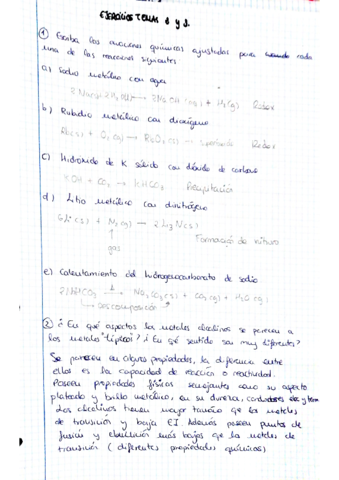 EJERCICIOS TEMAS 1 y 2.
① Escriba las ecuaciones químicas ajustadas para cada
una de las reacciones siguientes
a) Sodio metálico con agua
H₂(g) Redox
b) Rubidio metálico con dioxígeno
Rb(s) + O₂(g) → RbO₂(s) - superóxido Redox
c) Hidróxido de K sólido con dióxido de carbono
KOH + CO₂ → KHCO₃ Precipitación
d) Litio metálico con dinitrógeno
6Li(s) + N₂(g) → 2Li₃N(s)
gas Formación de nitruro
e) Calentamiento del hidrogenocarbonato de sodio
2NaHCO₃ → Na₂CO₃(s) + CO₂(g) + H₂O(g)
Descomposición
② ¿En qué aspectos los metales alcalinos se parecen a
los metales "típicos"? ¿En qué sentido son muy diferentes?
Se parecen en algunas propiedades, la diferencia entre
ellos es la capacidad de reacción o reactividad.
Poseen propiedades físicas semejantes como su aspecto
plateado y brillo metálico, en su dureza, conductores
Los alcalinos tienen mayor tamaño que los metales
de transición y baja EI. Además poseen puntos de
fusión y ebullición más bajos que los metales de
transición (diferentes propiedades químicas)